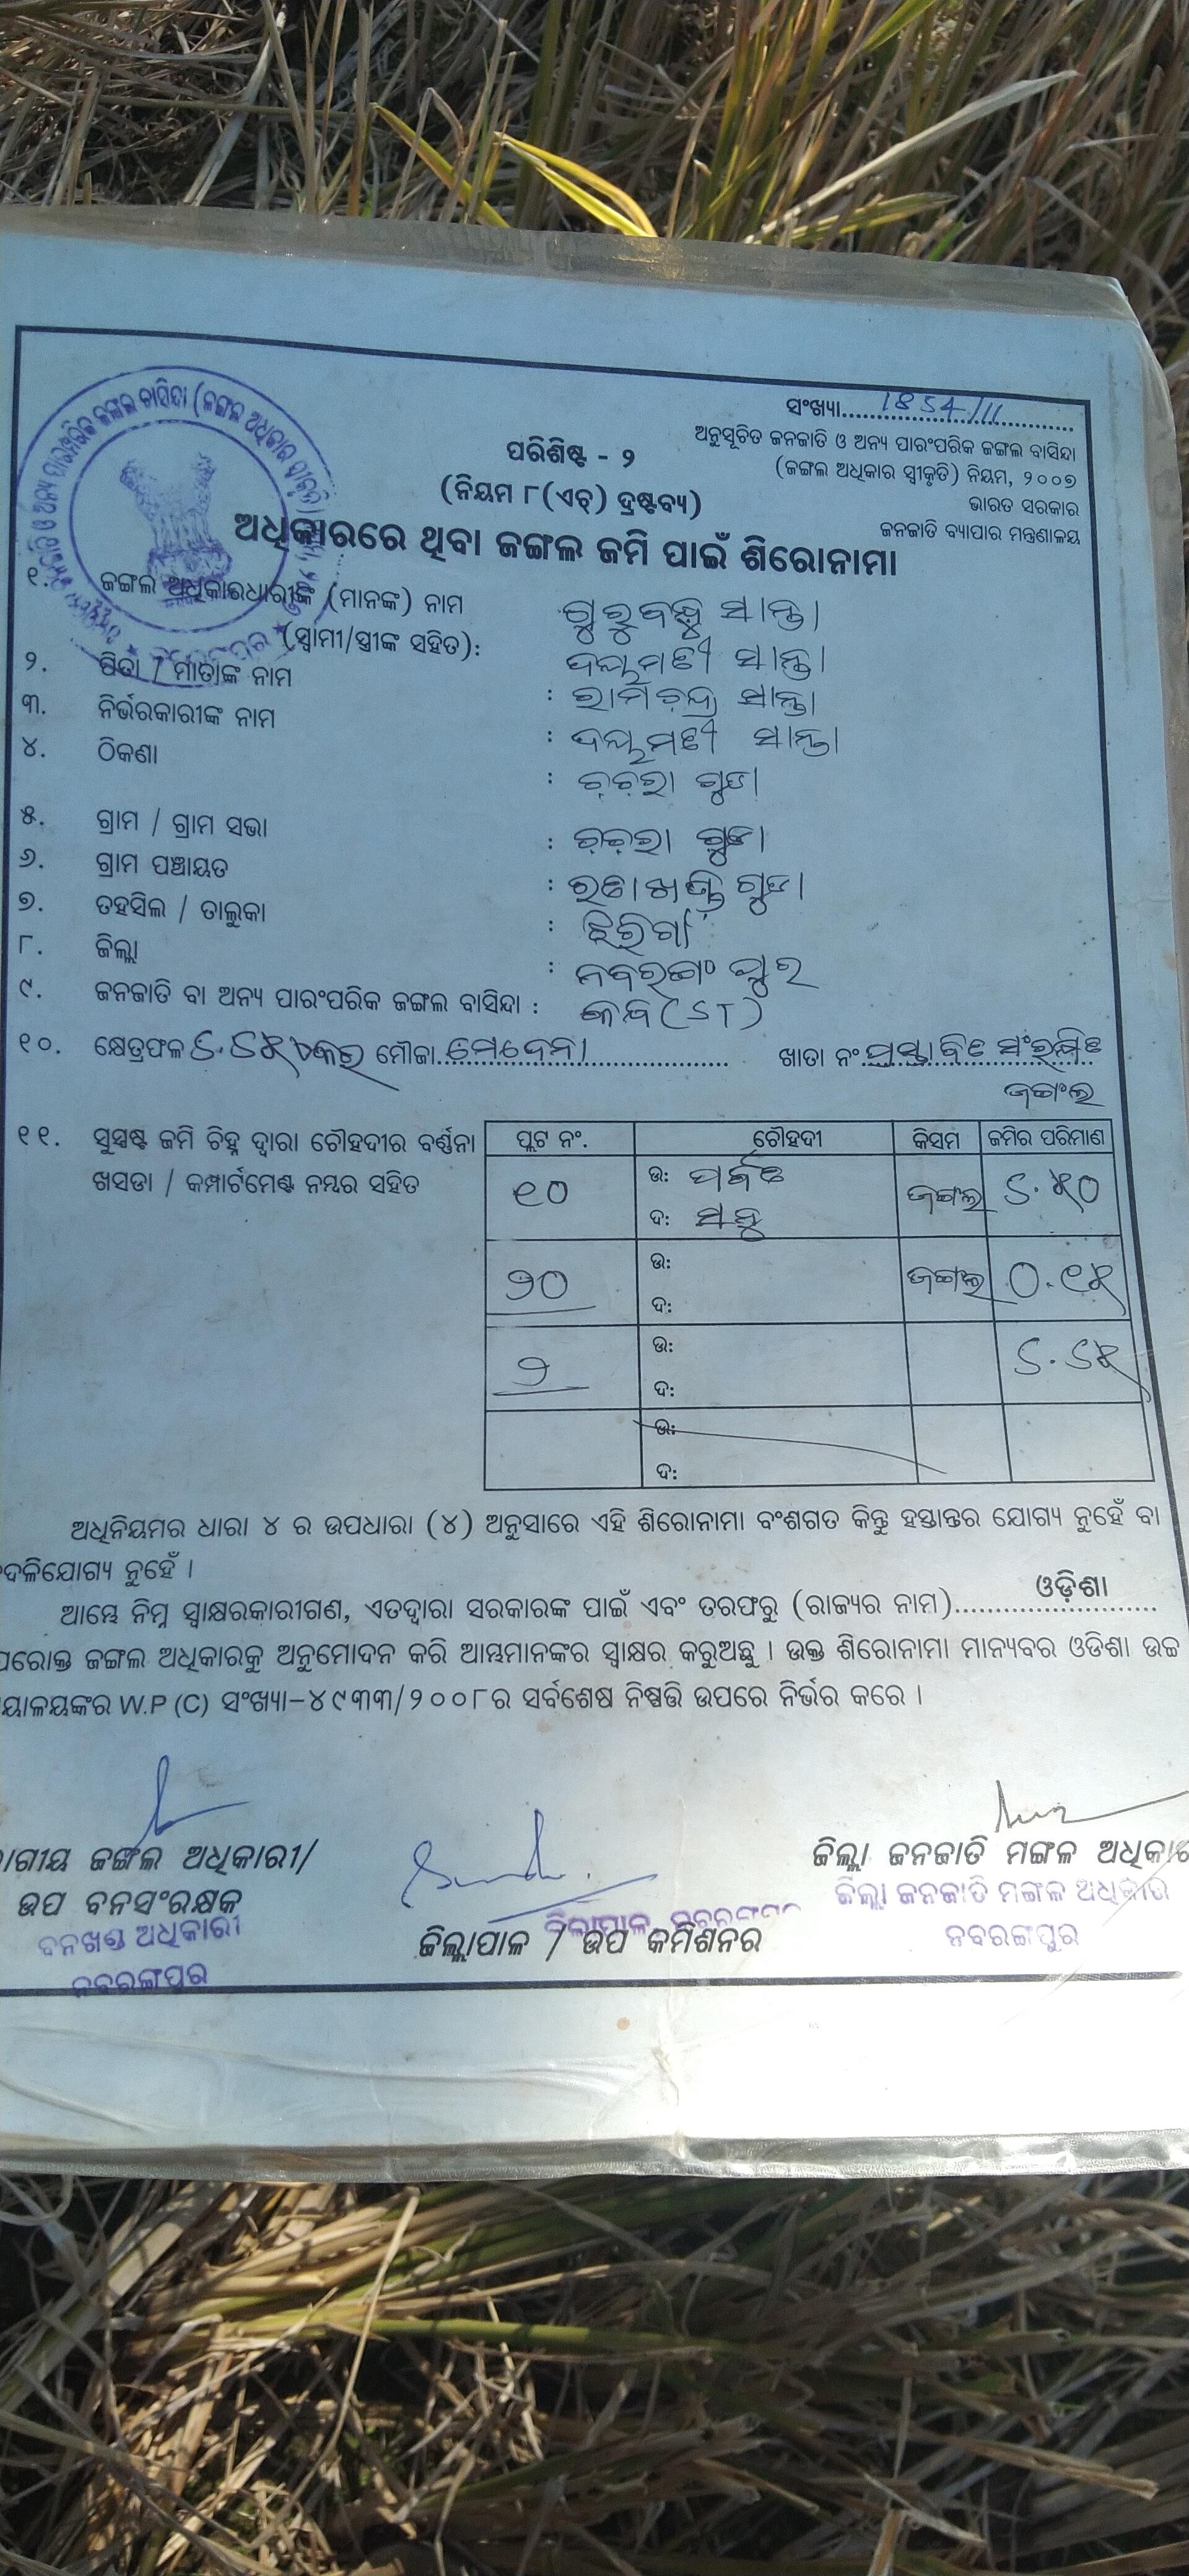 ସଂଖ୍ୟା.......1854/11.......
ଅନୁସୂଚିତ ଜନଜାତି ଓ ଅନ୍ୟ ପାରଂପରିକ ଜଙ୍ଗଲ ବାସିନ୍ଦା
(ଜଙ୍ଗଲ ଅଧିକାର ସ୍ୱୀକୃତି) ନିୟମ, ୨୦୦୭
ଭାରତ ସରକାର
ଜନଜାତି ବ୍ୟାପାର ମନ୍ତ୍ରଣାଳୟ
ପରିଶିଷ୍ଟ - ୨
(ନିୟମ ୮(ଏଚ୍) ଦ୍ରଷ୍ଟବ୍ୟ)
ଅଧିକାରରେ ଥିବା ଜଙ୍ଗଲ ଜମି ପାଇଁ ଶିରୋନାମା
୧. ଜଙ୍ଗଲ ଅଧିକାରଧାରୀଙ୍କ (ମାନଙ୍କ) ନାମ ଗୁରୁବନ୍ଧୁ ସାନ୍ତା
(ସ୍ୱାମୀ/ସ୍ତ୍ରୀଙ୍କ ସହିତ): ସାନ୍ତା
୨. ପିତା / ମାତାଙ୍କ ନାମ : ରାମଚନ୍ଦ୍ର ସାନ୍ତା
୩. ନିର୍ଭରକାରୀଙ୍କ ନାମ : ସାନ୍ତା
୪. ଠିକଣା : ଚଚରା ଗୁଡା
୫. ଗ୍ରାମ / ଗ୍ରାମ ସଭା : ଚଚରା ଗୁଡା
୬. ଗ୍ରାମ ପଞ୍ଚାୟତ : ଗୁଡା
୭. ତହସିଲ / ତାଲୁକା : ଝରିଗାଁ
୮. ଜିଲ୍ଲା : ନବରଙ୍ଗପୁର
୯. ଜନଜାତି ବା ଅନ୍ୟ ପାରଂପରିକ ଜଙ୍ଗଲ ବାସିନ୍ଦା : (ST)
୧୦. କ୍ଷେତ୍ରଫଳ ୫.୫୪ ଏକର ମୌଜା.... ଖାତା ନଂ ପ୍ରସ୍ତାବିତ ସଂରକ୍ଷିତ
ଜଙ୍ଗଲ
୧୧. ସୁସ୍ପଷ୍ଟ ଜମି ଚିହ୍ନ ଦ୍ୱାରା ଚୌହଦୀର ବର୍ଣ୍ଣନା
ଖସଡା / କମ୍ପାର୍ଟମେଣ୍ଟ ନମ୍ବର ସହିତ
ପ୍ଲଟ ନଂ. ଚୌହଦୀ କିସମ ଜମିର ପରିମାଣ
୧୦ ଉ: ପର୍ବତ ଜଙ୍ଗଲ ୫.୪୦
ଦ:
୨୦ ଉ: ଜଙ୍ଗଲ ୦.୧୪
ଦ:
୨ ଉ: ୫.୫୪
ଦ:
ଉ:
ଦ:
ଅଧିନିୟମର ଧାରା ୪ ର ଉପଧାରା (୪) ଅନୁସାରେ ଏହି ଶିରୋନାମା ବଂଶଗତ କିନ୍ତୁ ହସ୍ତାନ୍ତର ଯୋଗ୍ୟ ନୁହେଁ ବା
ଦଳିଯୋଗ୍ୟ ନୁହେଁ ।
ଆମ୍ଭେ ନିମ୍ନ ସ୍ୱାକ୍ଷରକାରୀଗଣ, ଏତଦ୍ୱାରା ସରକାରଙ୍କ ପାଇଁ ଏବଂ ତରଫରୁ (ରାଜ୍ୟର ନାମ)......ଓଡ଼ିଶା......
ପରୋକ୍ତ ଜଙ୍ଗଲ ଅଧିକାରକୁ ଅନୁମୋଦନ କରି ଆମ୍ଭମାନଙ୍କର ସ୍ୱାକ୍ଷର କରୁଅଛୁ । ଉକ୍ତ ଶିରୋନାମା ମାନ୍ୟବର ଓଡିଶା ଉଚ୍ଚ
ୟାଳୟଙ୍କର W.P (C) ସଂଖ୍ୟା-୪୯୩୩/୨୦୦୮ର ସର୍ବଶେଷ ନିଷ୍ପତ୍ତି ଉପରେ ନିର୍ଭର କରେ ।
ଗୀୟ ଜଙ୍ଗଲ ଅଧିକାରୀ/
ଉପ ବନସଂରକ୍ଷକ
ବନଖଣ୍ଡ ଅଧିକାରୀ
ନବରଙ୍ଗପୁର
ଜିଲ୍ଲାପାଳ / ଉପ କମିଶନର
ଜିଲ୍ଲା ଜନଜାତି ମଙ୍ଗଳ ଅଧିକାର
ଜିଲ୍ଲା ଜନଜାତି ମଙ୍ଗଳ ଅଧିକାର
ନବରଙ୍ଗପୁର